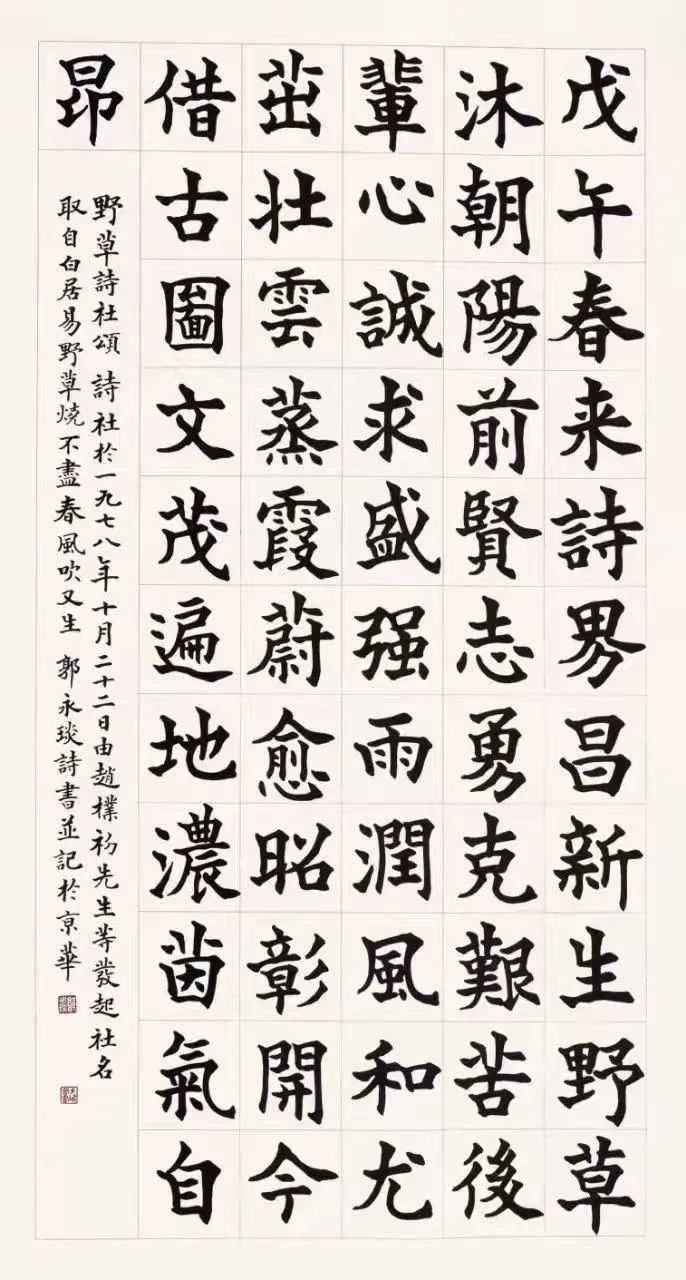 戊午春来詩界昌新生野草
沐朝陽前賢志勇克艱苦後
輩心誠求盛强雨潤風和尤
茁壮雲蒸霞蔚愈昭彰開今
借古圖文茂遍地濃茵氣自
昂
野草詩社頌 詩社於一九七八年十月二十二日由趙樸初先生等發起社名
取自白居易野草燒不盡春風吹又生 郭永琰詩書並記於京華